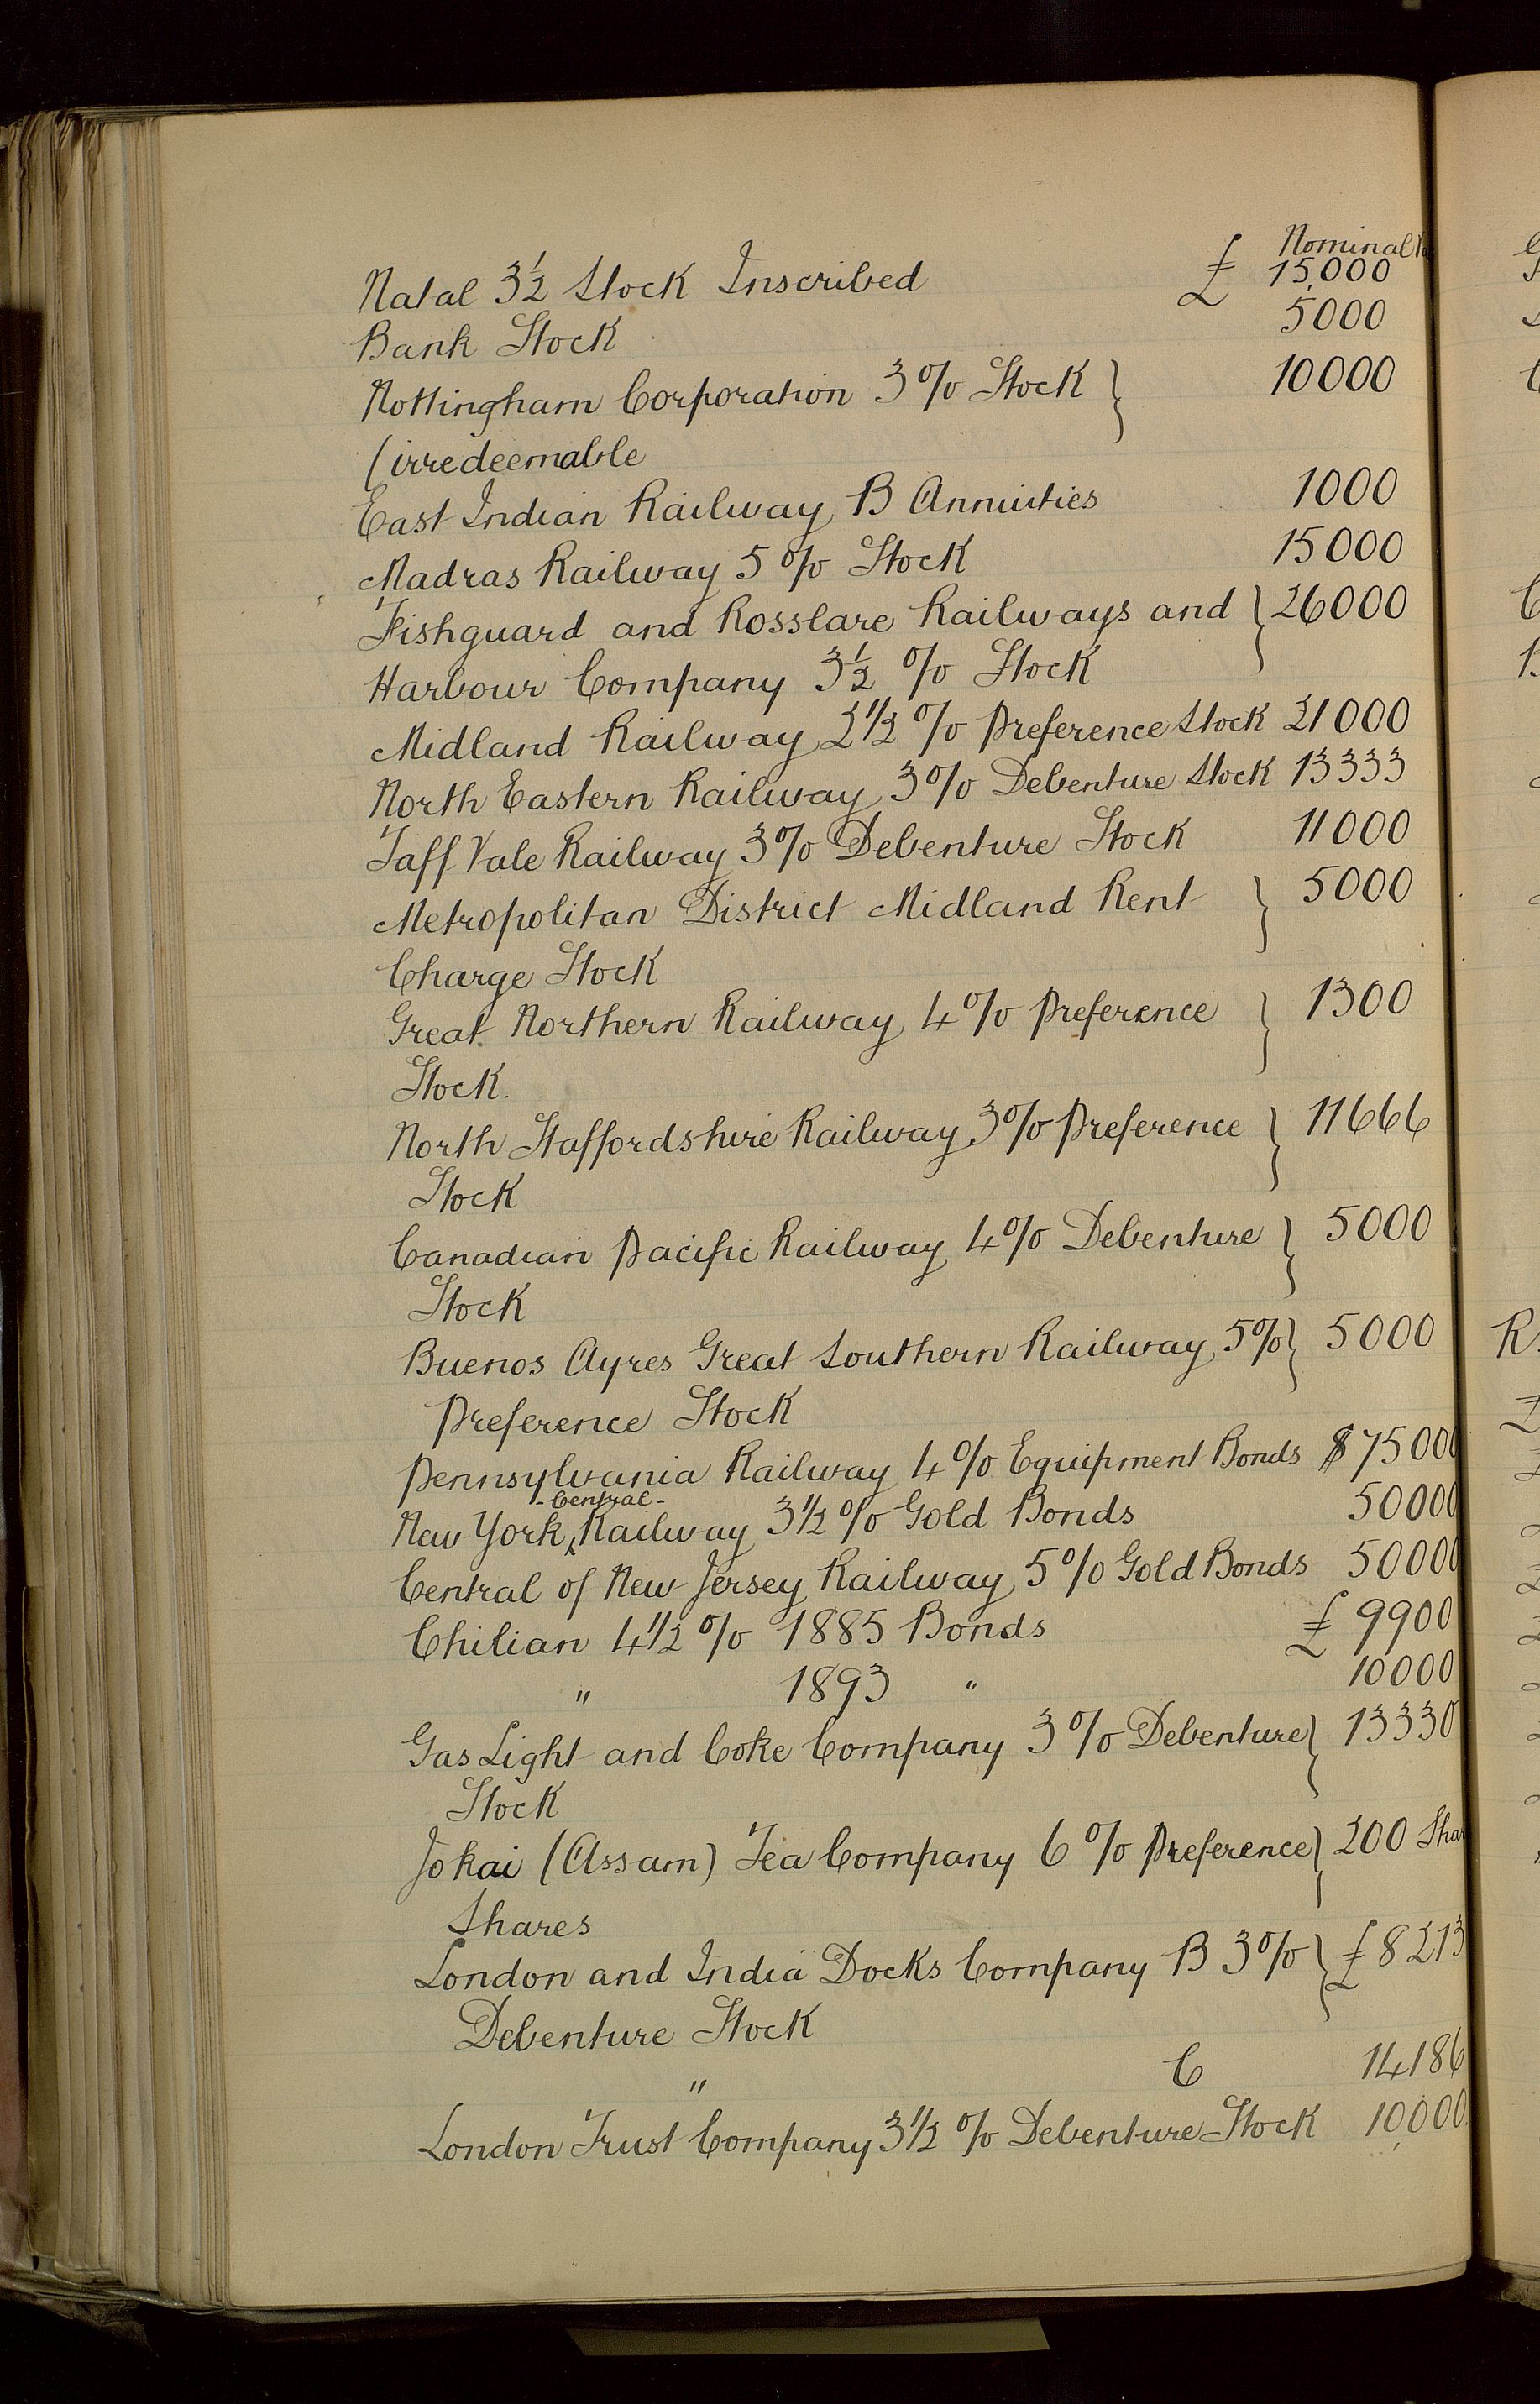 Nominal
Natal 3½ Stock Inscribed £ 15,000
Bank Stock 5000
Nottingham Corporation 3% Stock } 10000
(irredeemable
East Indian Railway B Annuities 1000
Madras Railway 5% Stock 15000
Fishguard and Rosslare Railways and } 26000
Harbour Company 3½ % Stock
Midland Railway 2½ % Preference Stock 21000
North Eastern Railway 3% Debenture Stock 13333
Taff Vale Railway 3% Debenture Stock 11000
Metropolitan District Midland Rent } 5000
Charge Stock
Great Northern Railway 4% Preference } 1300
Stock.
North Staffordshire Railway 3% Preference } 11666
Stock
Canadian Pacific Railway 4% Debenture } 5000
Stock
Buenos Ayres Great Southern Railway 5% } 5000
Preference Stock
Pennsylvania Railway 4% Equipment Bonds $ 75000
-Central-
New York Railway 3½ % Gold Bonds 50000
Central of New Jersey Railway 5% Gold Bonds 50000
Chilian 4½ % 1885 Bonds £ 9900
" 1893 " 10000
Gas Light and Coke Company 3% Debenture } 13330
Stock
Jokai (Assam) Tea Company 6% Preference } 200 Shar
Shares
London and India Docks Company B 3% } £ 8213
Debenture Stock
" C 14186
London Trust Company 3½ % Debenture Stock 10000